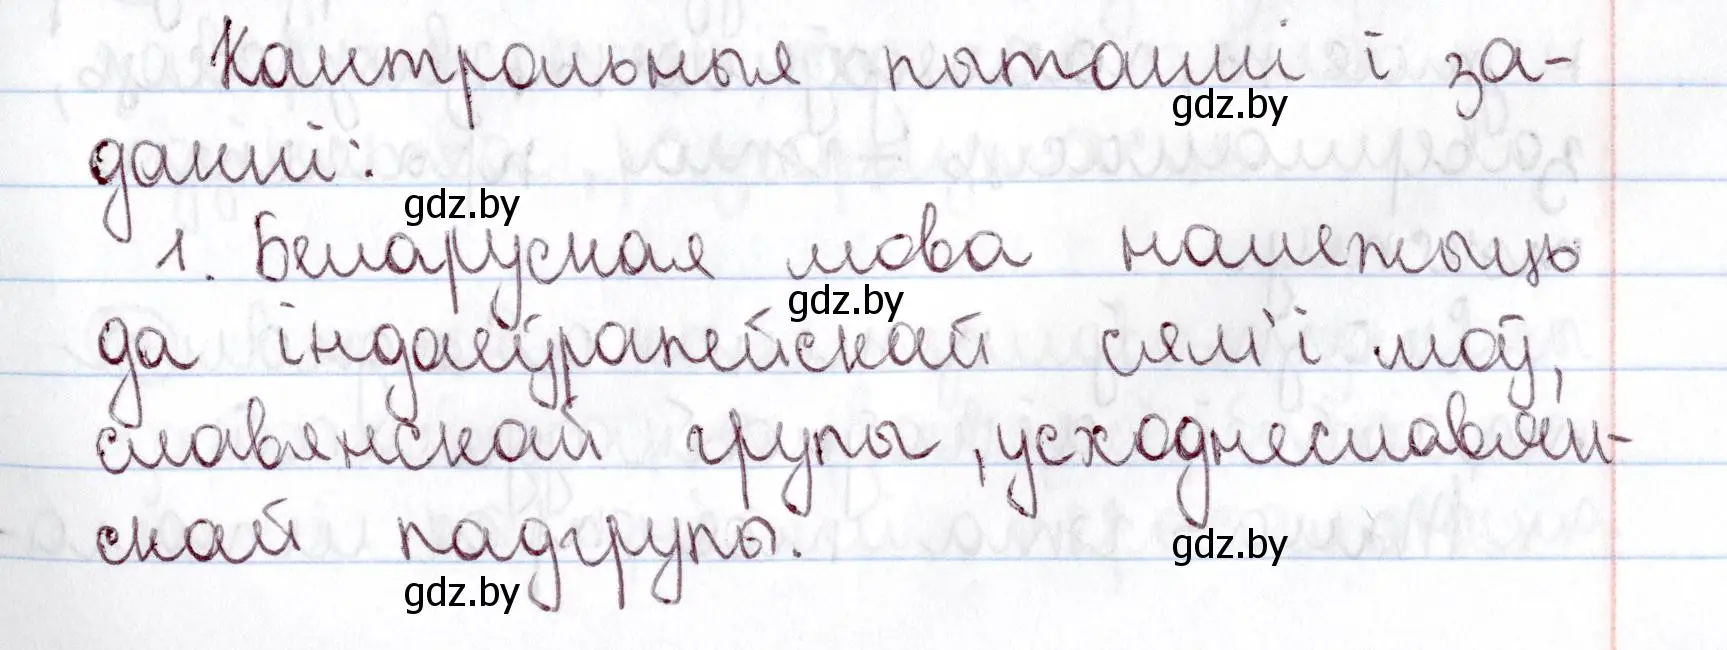 Кантрольныя пытанні і за-
gdz.by
данні:
gdz.by
1. Беларуская мова належыць
gdz.by
да індаеўрапейскай сям'і моў,
славянскай групы, усходнеславян-
скай падгрупы.
gdz.by
gdz.by